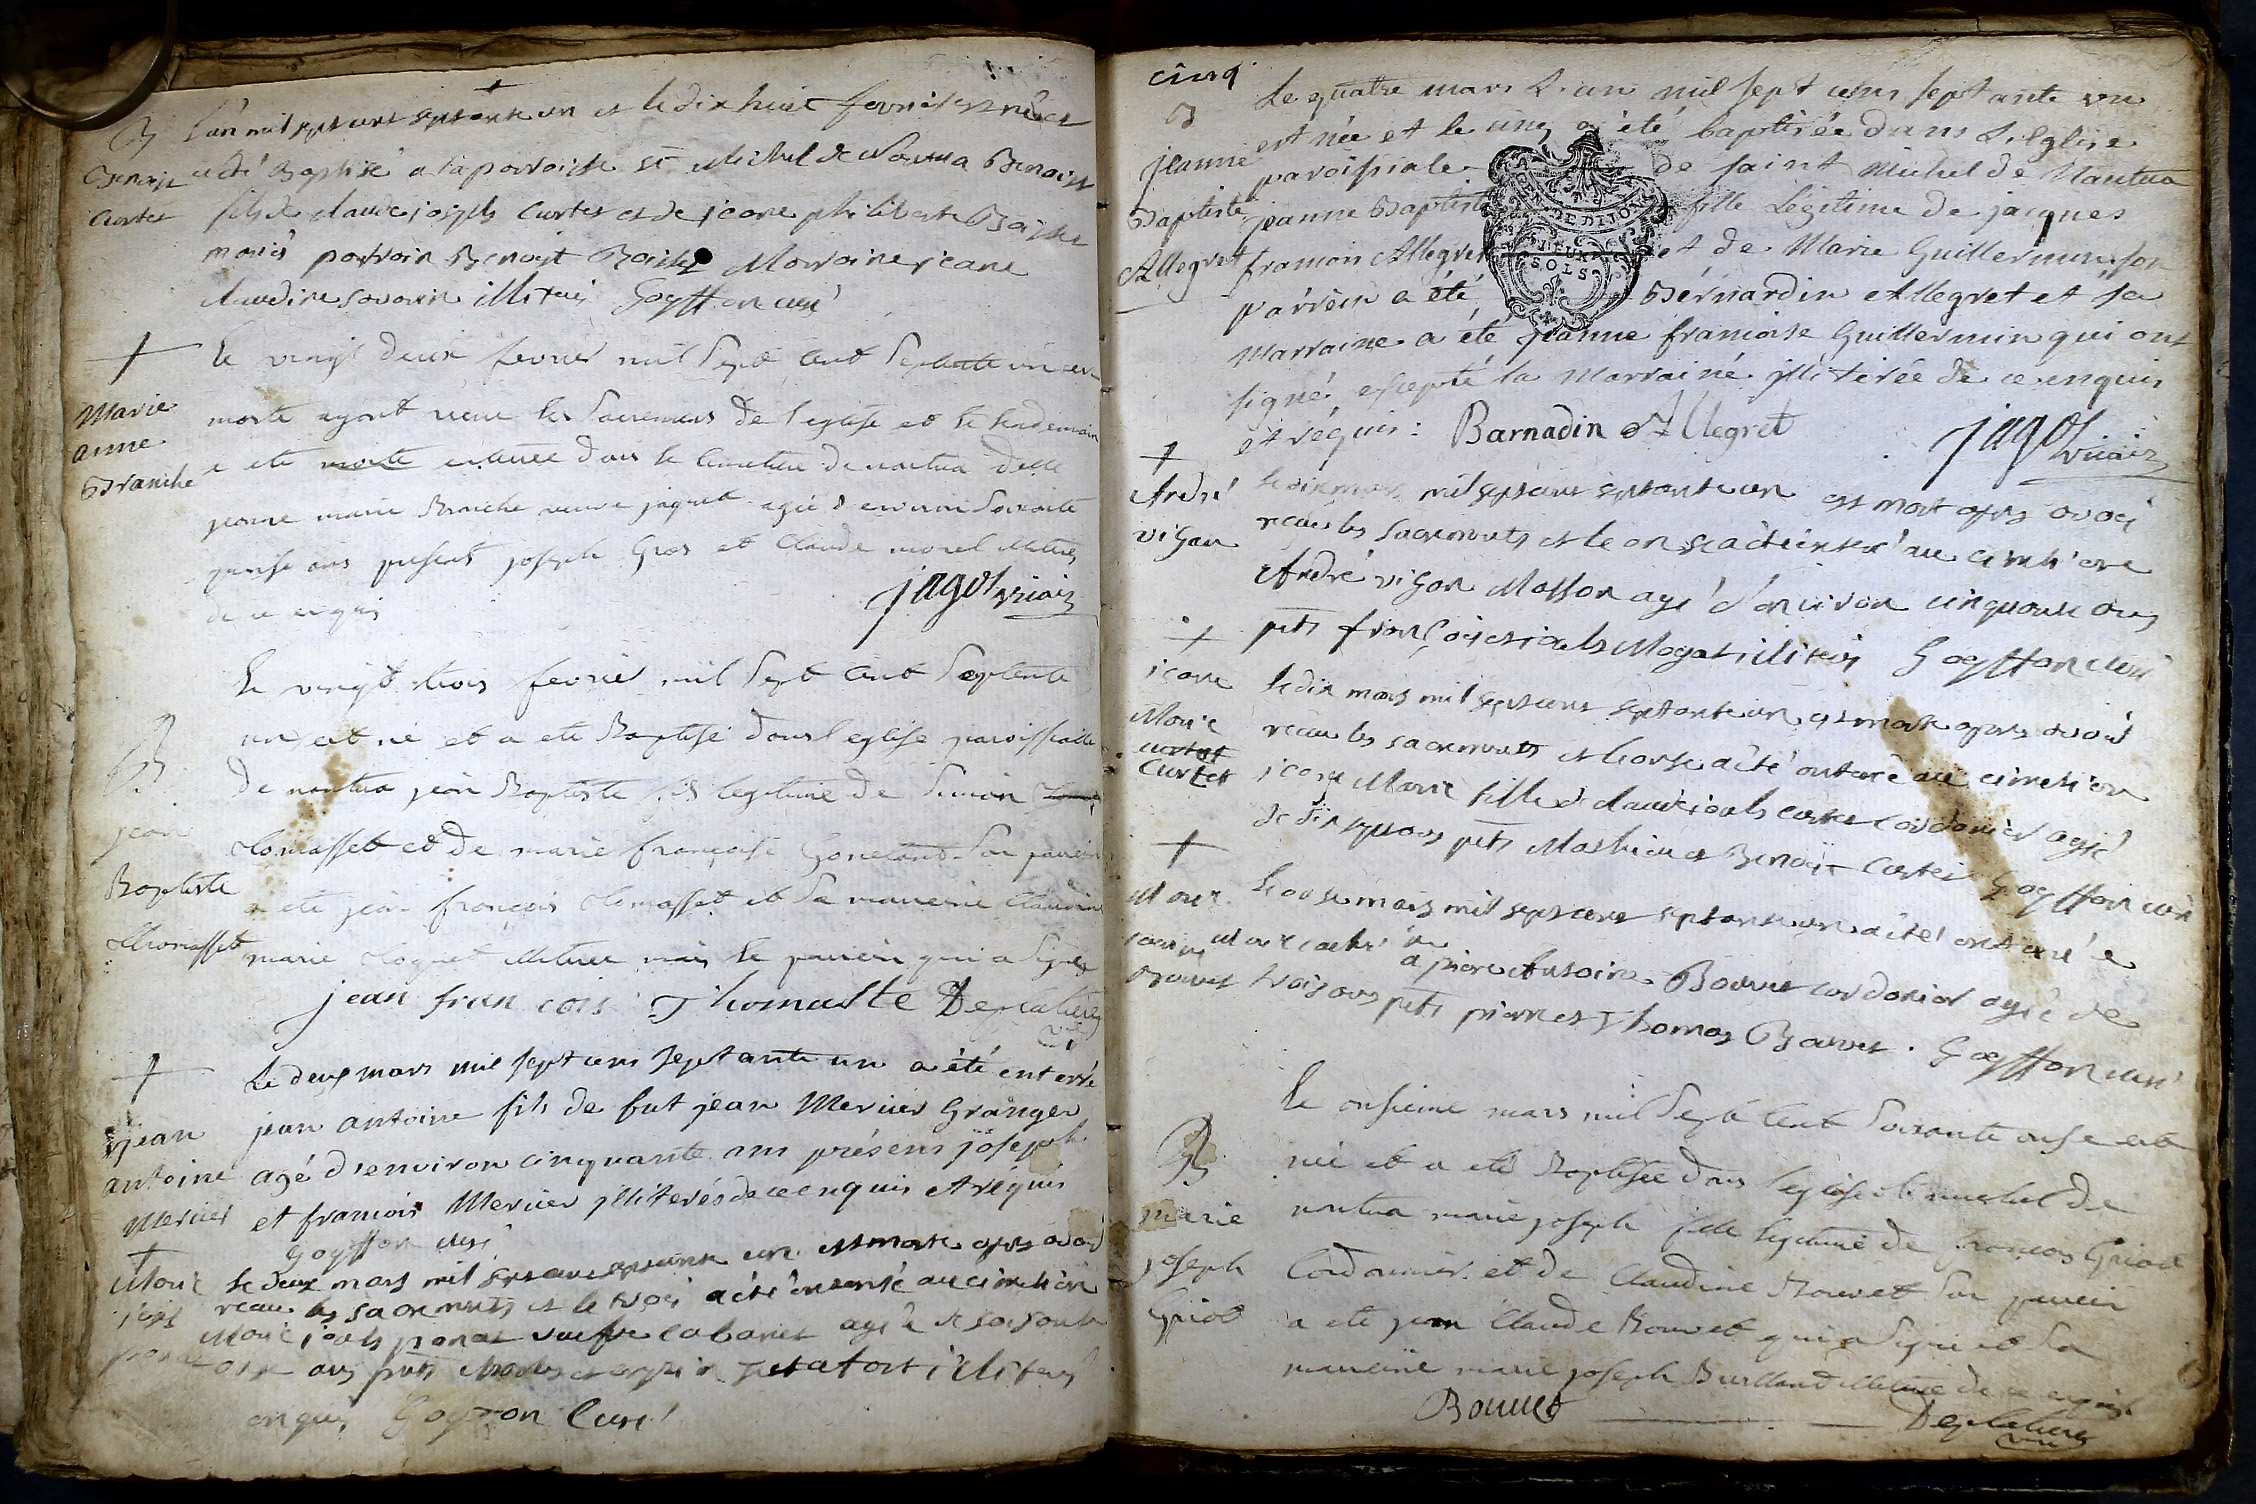 B
Benoist
Curtet
L'an mil sept cent septante un et le dix huit fevrier est né et
a été Baptisé a la parroisse st Michel de Nantua Benoist
fils de claude joseph Curtet et de jeane philiberte
mariés parrain Benoist Marraine jeane
claudine illiterés Goyffon curé
Marie
anne
Branche
Le vingt deux fevrier mil Sept cent Septente un est
morte ayant recue les Sacremens de l'eglise et le lendemain
a ete morte enterrée dans le Cimetiere de nantua
jeanne marie Branche veuve jaquet agée d'environ Soixante
quinse ans present joseph Gros et Claude morel illiterés
de ce enquis
jagot vicaire
B
jean
Baptiste
thomasset
Le vingt trois fevrier mil Sept cent Septente
un est né et a ete Baptisé dans l'eglise paroissialle
de nantua jean Baptiste fils legitime de Simon
thomasset et de marie françoise Son parrein
a ete jean françois thomasset et Sa marreine Claudine
marie illiterée mais le parrein qui a Signé
jean fran cois Thomaste Deplatiere
vic
jean
antoine
Mercier
Le deux mars mil sept cens septante un a été enterré
jean antoine fils de fut jean Mercier Granger
agé d'environ cinquante ans présens joseph
et francois Mercier illiterés de ce enquis et réquis
Goyffon curé
Marie
jose
Le deux mars mil sept cent septante un est morte apres avoir
recu les sacrements et le trois a été enterré au cimetiere
Marie agé de soisante
ans pnts illiteres
enquis Goyffon Curé
cinq
B
jeanne
Baptiste
Allegret
Le quatre mars L'an mil sept cens septante un
est née et le cinq a été baptisée dans L'Eglise
paroissiale de saint Michel de Nantua
jeanne Baptiste fille Légitime de jacques
francois Allegret et de Marie Guillermin, son
parrein a été Bérnardin Allegret et sa
Marraine a été jeanne francoise Guillermin qui ont
signé, excepté la Marrainé illiterée de ce enquis
et réquis: Barnadin Allegret
jagot vicaire
GEN. DE DIJON
DEUX
SOLS
André
vigan
Le dix mars mil sept cent septante un est mort apres avoir
recu les sacrements et le onse a été enterré au cimetiere
André vigan Masson agé d'environ cinquante ans
pnts françois et illiterés Goyffon curé
jeane
Marie
curtet
Curtet
Le dix mars mil sept cent septante un est morte apres avoir
recu les sacrements et le onse a été enterré au cimetiere
jeane Marie fille de claude curtet cordonier agée
de dix sept ans pnts Mathieu et Benoit Curtet Goyffon curé
Marie
Bouvet
Le onse mars mil sept cent septante un a été enterré e
Marie a piere Antoine Bouvet cordonier agée de
trois ans pnts pierre et Thomas Bouvet. Goyffon curé
B
marie
joseph
Griot
Le onsieme mars mil Sept Cent Soixante onse est
née et a eté Baptisée dans l'eglise st michel de
nantua marie joseph fille legitime de françois Griot
Cordonnier et de Claudine Bouvet Son parrein
a ete jean Claude Bouvet qui a Signé et Sa
marreine marie joseph illiterée de ce enquise
Bouvet
Deplatiere
vic